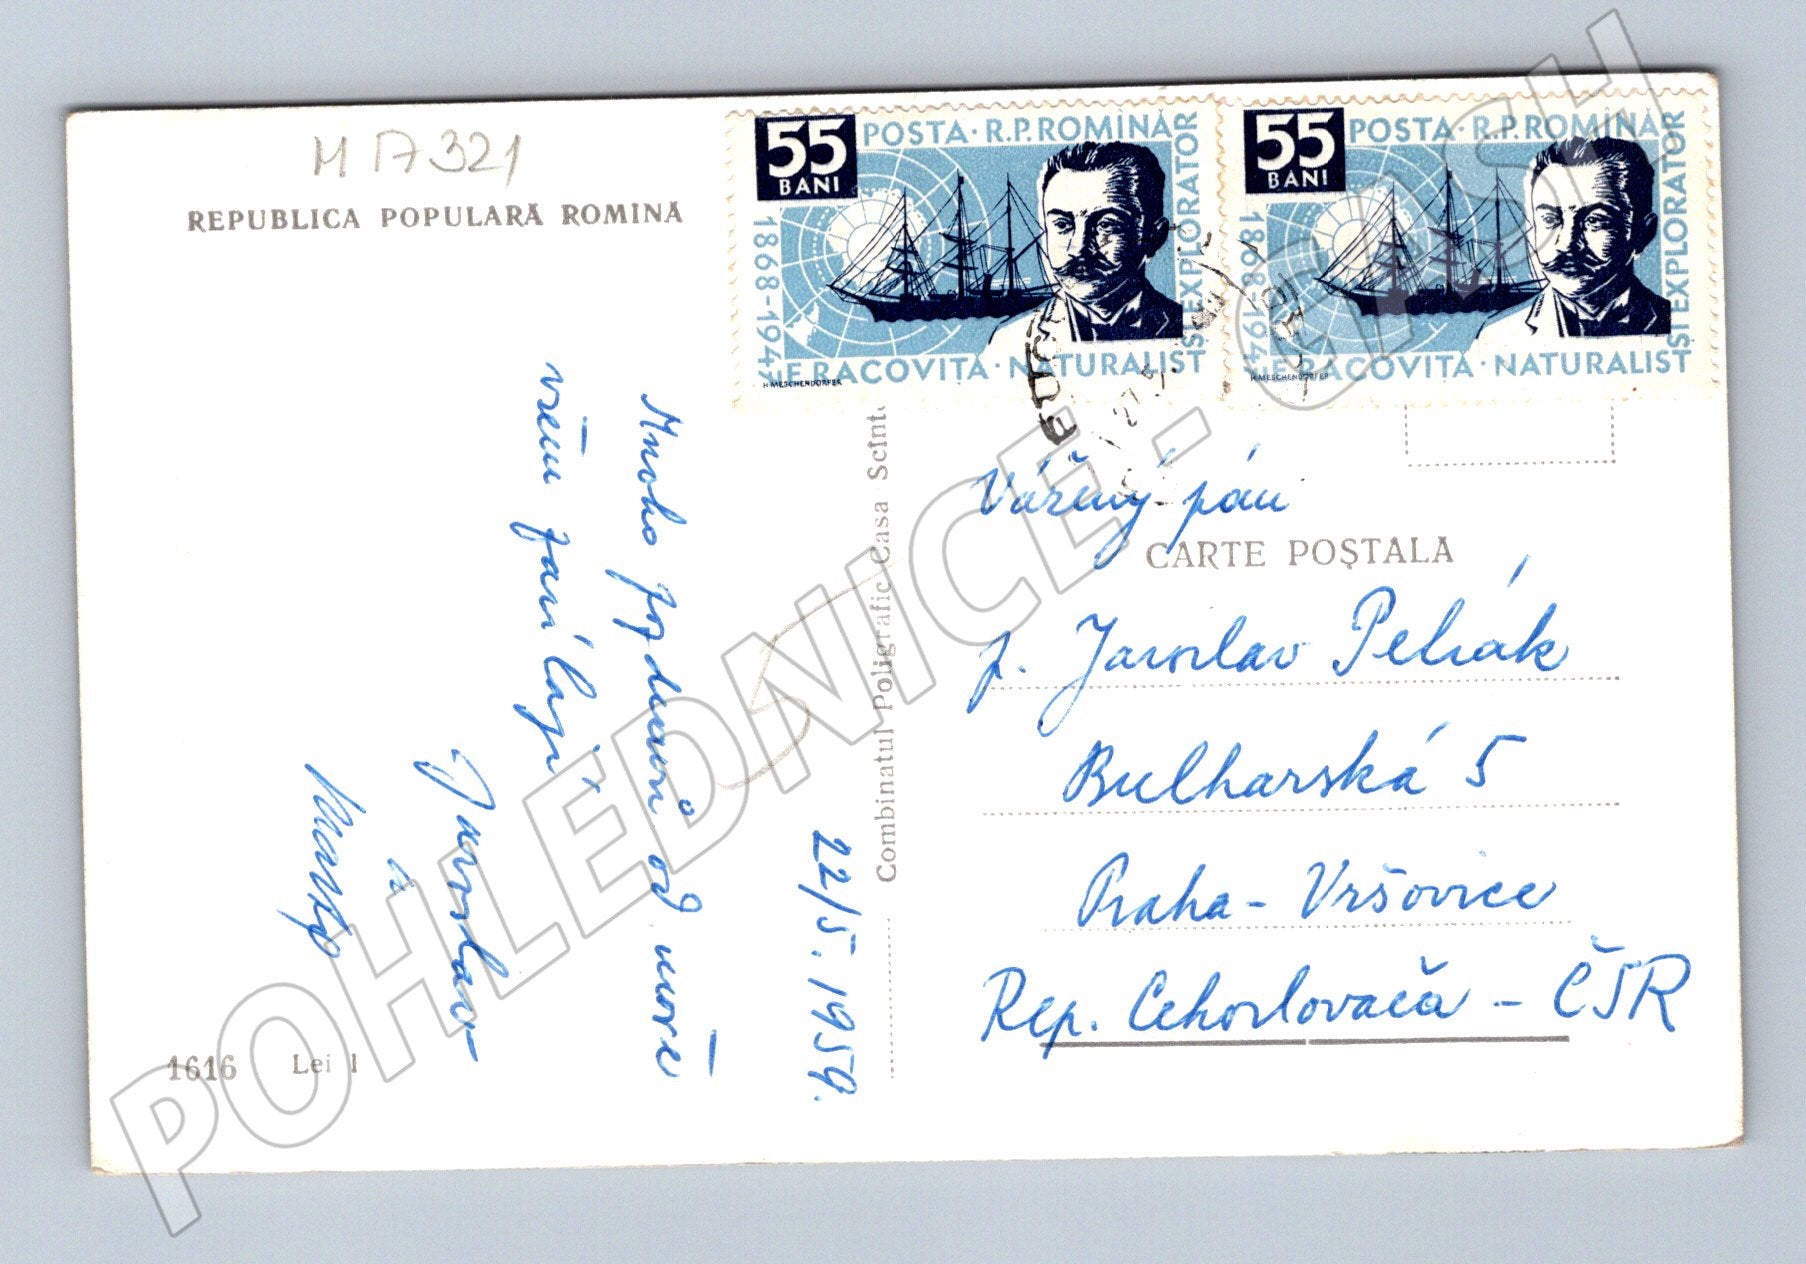 M 17321
REPUBLICA POPULARĂ ROMÎNĂ
55
BANI
POSTA · R.P.ROMÎNĂR
1868-1947
E RACOVIȚĂ · NATURALIST
ȘI EXPLORATOR
H.MESCHENDORFER
55
BANI
POSTA · R.P.ROMÎNĂR
1868-1947
E RACOVIȚĂ · NATURALIST
ȘI EXPLORATOR
H.MESCHENDORFER
27
Mnoho pozdravů od moře
všem zasílají
Jaroslav
a
22/5. 1959.
Combinatul Poligrafic Casa Scînte
Vážený pán
CARTE POȘTALA
p. Jaroslav
Bulharská 5
Praha - Vršovice
Rep. Cehoslovacă - ČSR
1616 Lei 1
POHLEDNICE - CASH